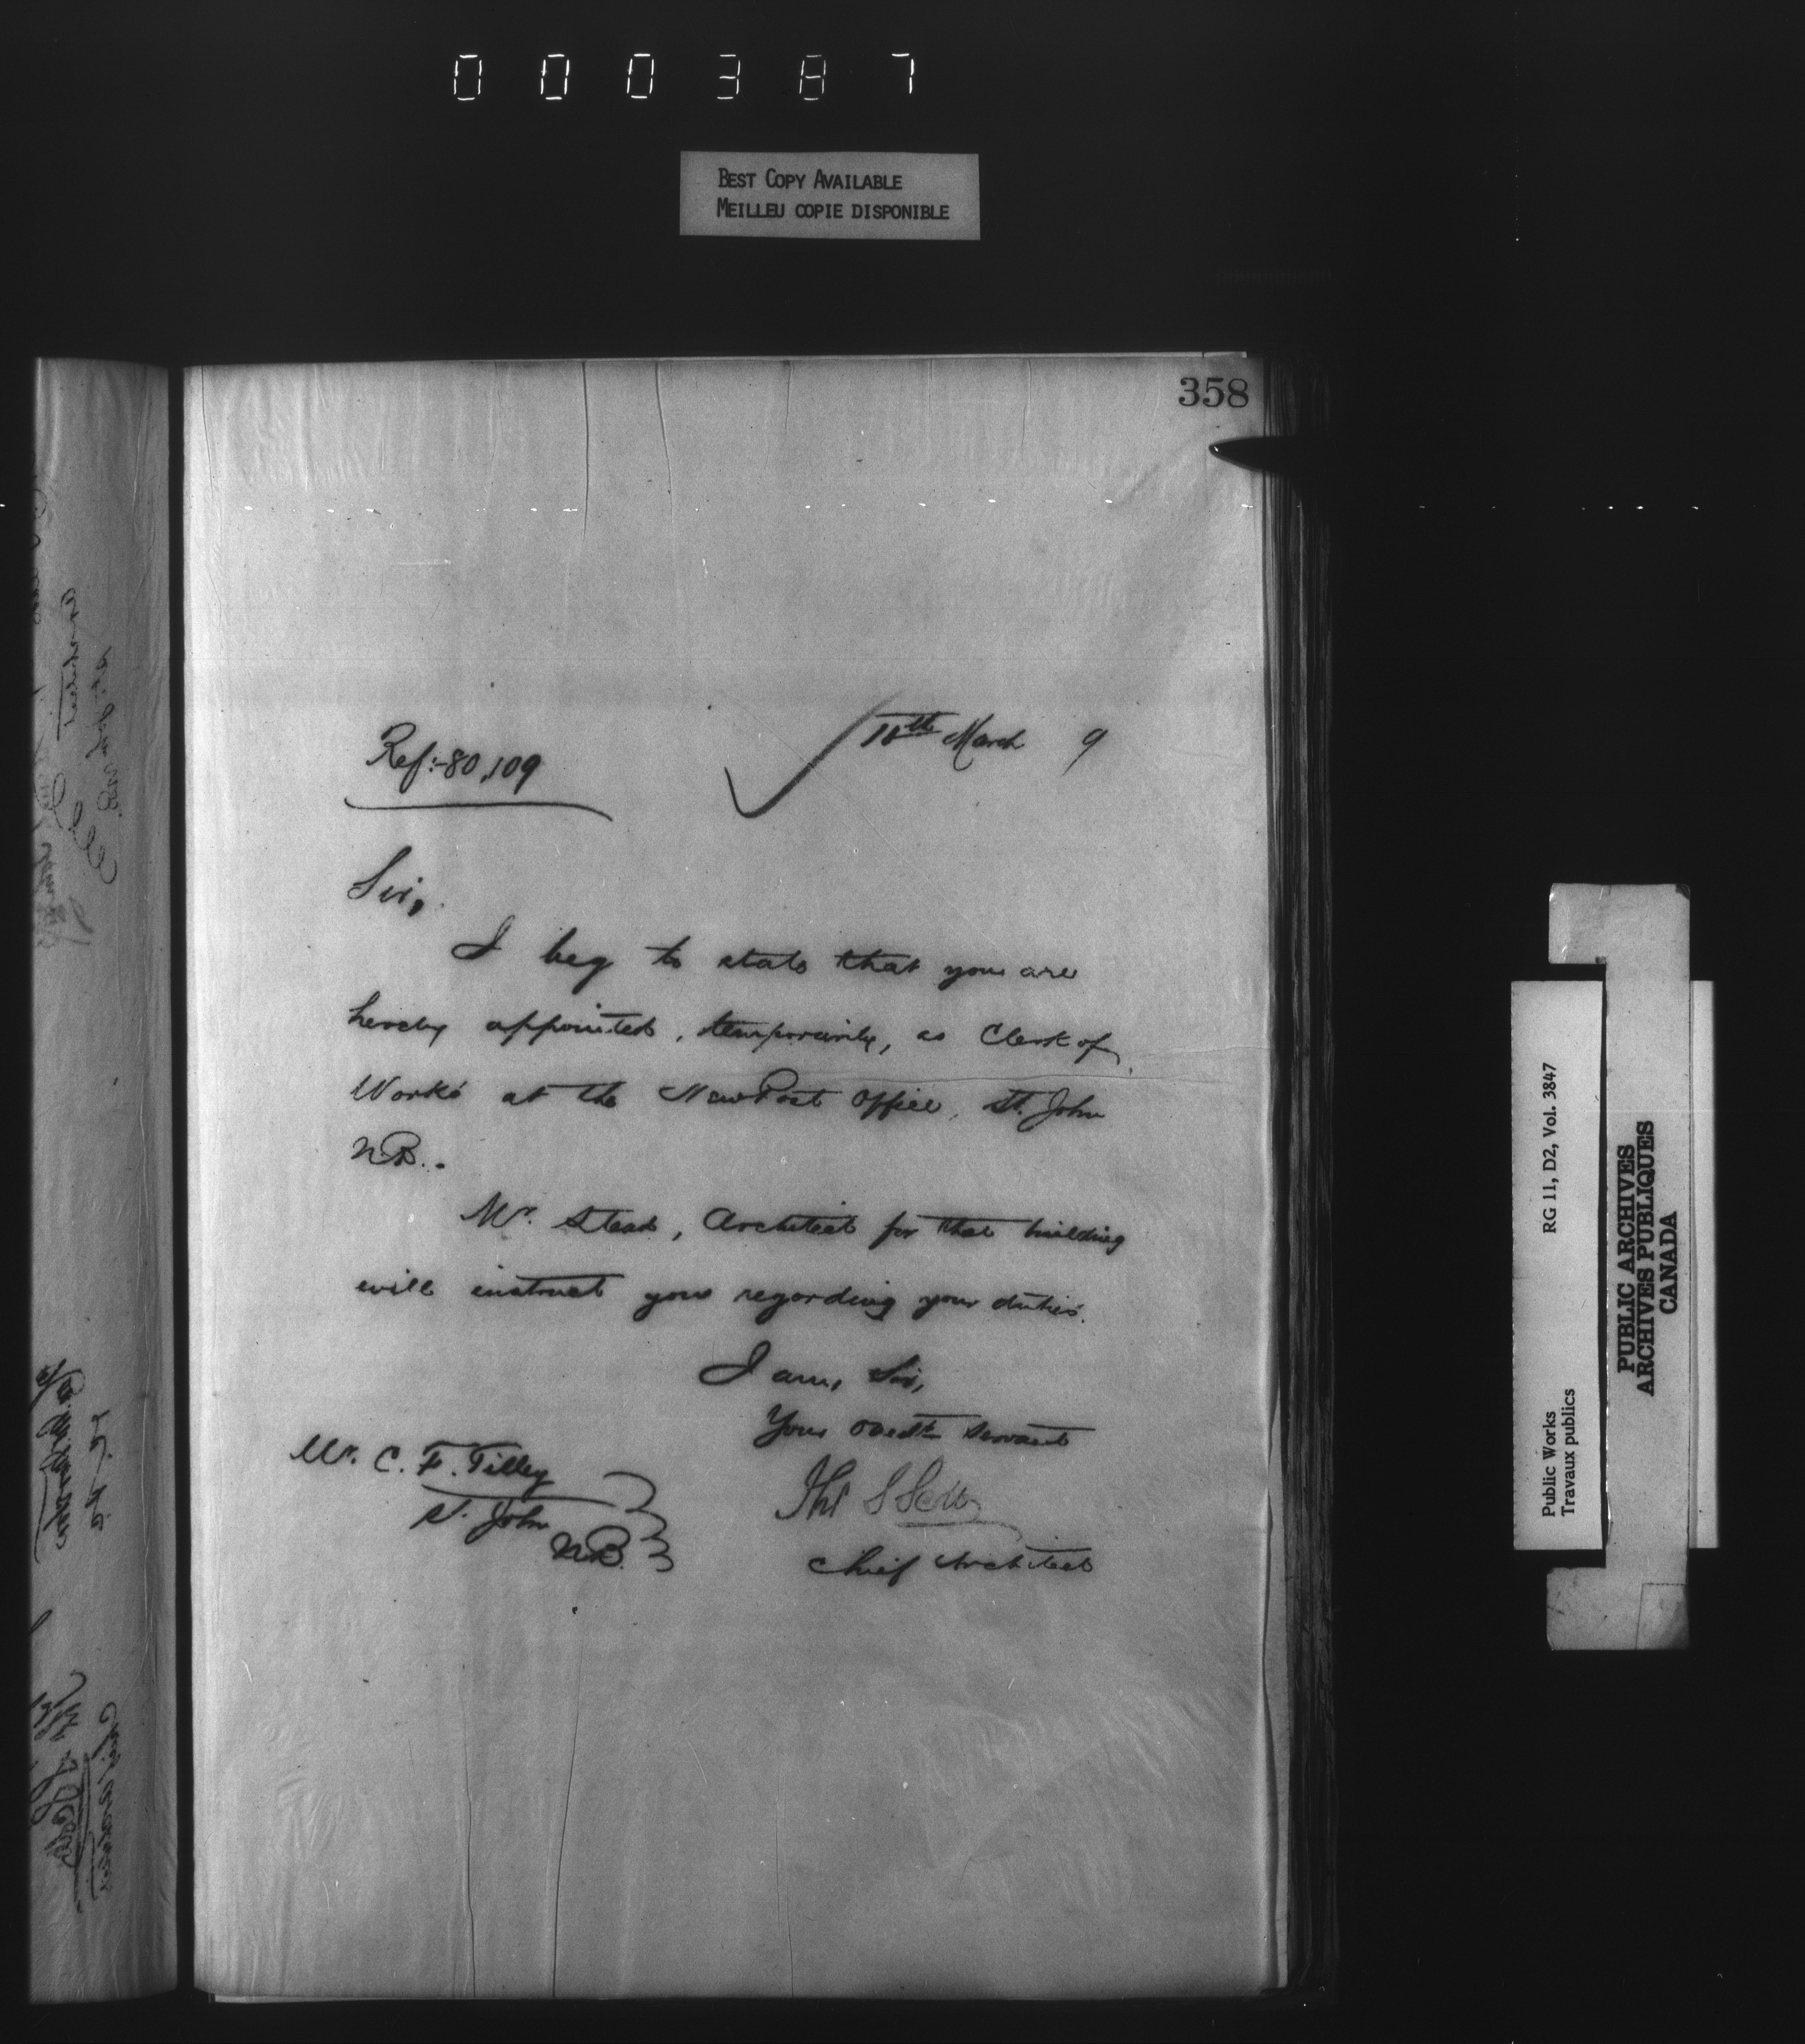 000387
BEST COPY AVAILABLE
MEILLEU COPIE DISPONIBLE
358
Ref:-80,109
18th March 9
Sir,
I beg to state that you are
hereby appointed, temporarily, as Clerk of
Works at the New Post Office, St. John
N.B.
Mr. Stead, Architect for that building
will instruct you regarding your duties.
I am, Sir,
Your obedt servant
Thos S Scott
Chief Architect
Mr. C. F. Tilley
St. John
N.B.
Public Works
Travaux publics
RG 11, D2, Vol. 3847
PUBLIC ARCHIVES
ARCHIVES PUBLIQUES
CANADA